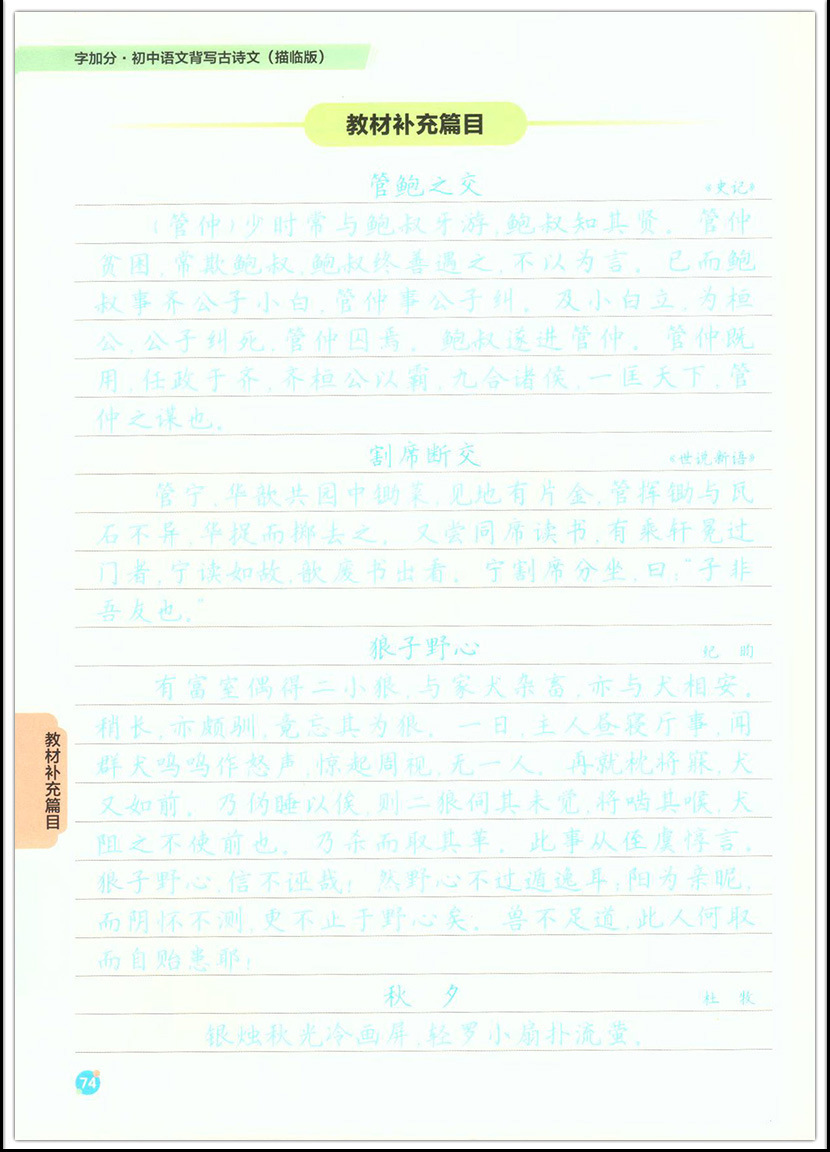 字加分·初中语文背写古诗文（描临版）
教材补充篇目
管鲍之交 《史记》
（管仲）少时常与鲍叔牙游，鲍叔知其贤。管仲
贫困，常欺鲍叔，鲍叔终善遇之，不以为言。已而鲍
叔事齐公子小白，管仲事公子纠。及小白立，为桓
公，公子纠死，管仲囚焉。鲍叔遂进管仲。管仲既
用，任政于齐，齐桓公以霸，九合诸侯，一匡天下，管
仲之谋也。
割席断交 《世说新语》
管宁、华歆共园中锄菜，见地有片金，管挥锄与瓦
石不异，华捉而掷去之。又尝同席读书，有乘轩冕过
门者，宁读如故，歆废书出看。宁割席分坐，曰：“子非
吾友也。”
狼子野心 纪昀
有富室偶得二小狼，与家犬杂畜，亦与犬相安。
稍长，亦颇驯，竟忘其为狼。一日，主人昼寝厅事，闻
群犬呜呜作怒声，惊起周视，无一人。再就枕将寐，犬
又如前。乃伪睡以俟，则二狼伺其未觉，将啮其喉，犬
阻之不使前也。乃杀而取其革。此事从侄虞惇言。
狼子野心，信不诬哉！然野心不过遁逸耳；阳为亲昵，
而阴怀不测，更不止于野心矣。兽不足道，此人何取
而自贻患耶！
秋 夕 杜 牧
银烛秋光冷画屏，轻罗小扇扑流萤。
教材补充篇目
74